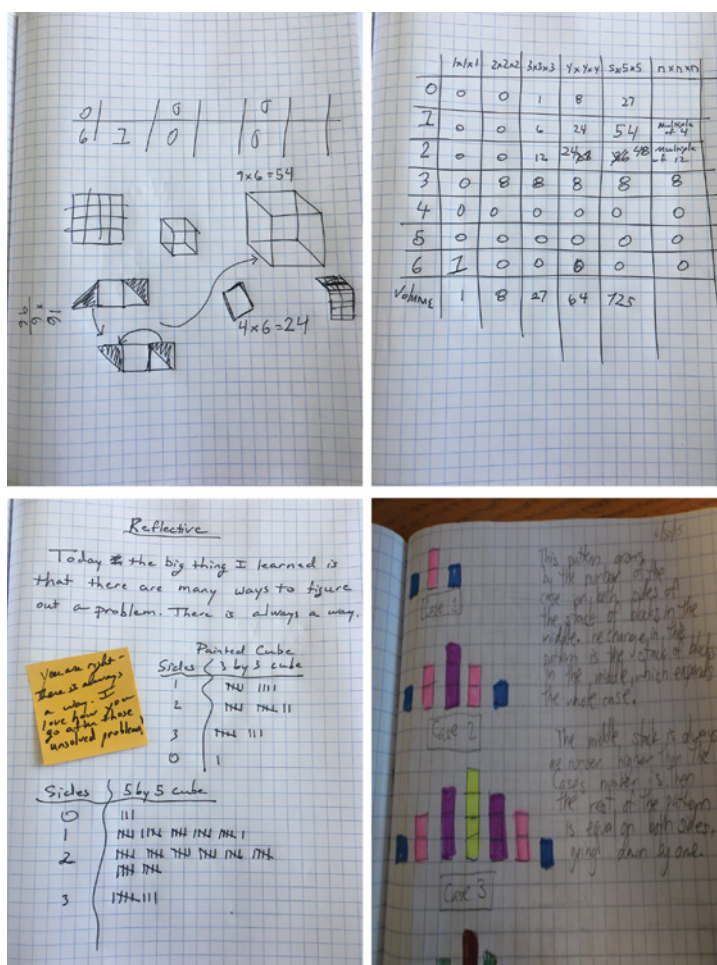 0 0 0
6 1 0 0
9x6=54
4x6=24
1x1x1 2x2x2 3x3x3 4x4x4 5x5x5 nxnxn
0 0 0 1 8 27
1 0 0 6 24 54 multiple of 4
2 0 0 12 24 48 multiple of 12
3 0 8 8 8 8 8
4 0 0 0 0 0 0
5 0 0 0 0 0 0
6 1 0 0 0 0 0
Volume 1 8 27 64 125
Reflective
Today the big thing I learned is
that there are many ways to figure
out a problem. There is always a way.
You are right -
there is always
a way. I
love how you
go after those
unsolved problems!
Painted Cube
Sides 3 by 3 cube
1
2
3
0
Sides 5 by 5 cube
0
1
2
3
This pattern grows
by the number of the
case on both sides of
the stack of blocks in the
middle. The change in this
pattern is the stack of blocks
in the middle, which expands
the whole case.
The middle stack is always
one number higher than the
case's number is then
the rest of the pattern
is equal on both sides,
going down by one.
Case 1
Case 2
Case 3